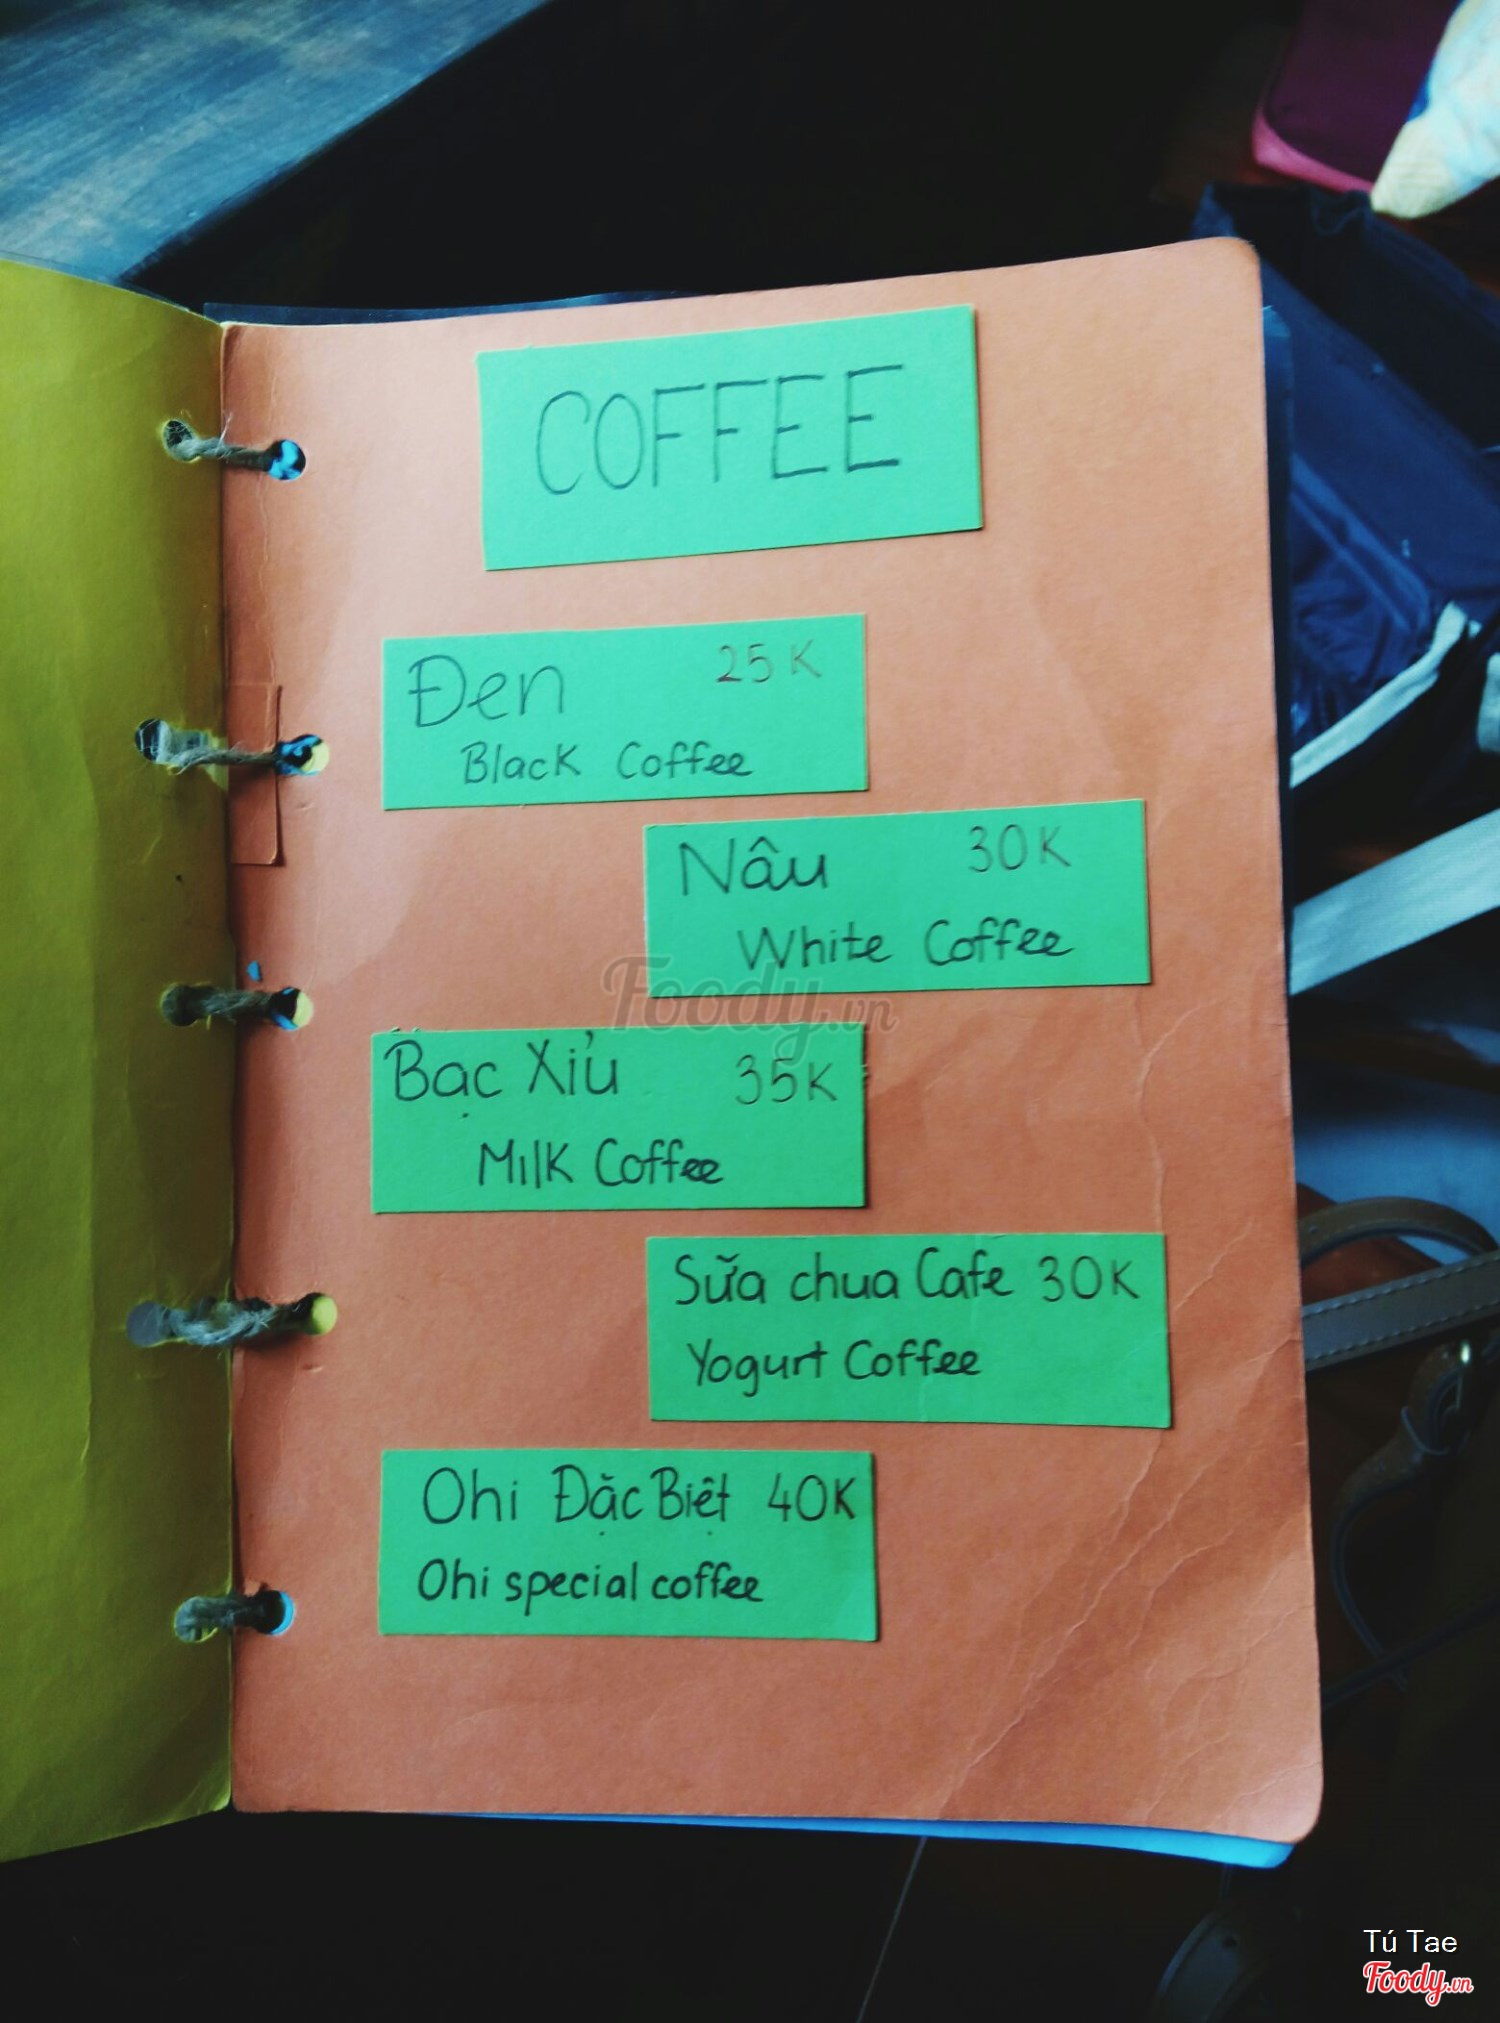 COFFEE
Đen 25K
Black Coffee
Nâu 30K
White Coffee
Foody.vn
Bạc Xỉu 35K
Milk Coffee
Sữa chua Cafe 30K
Yogurt Coffee
Ohi Đặc Biệt 40K
Ohi special coffee
Tú Tae
Foody.vn